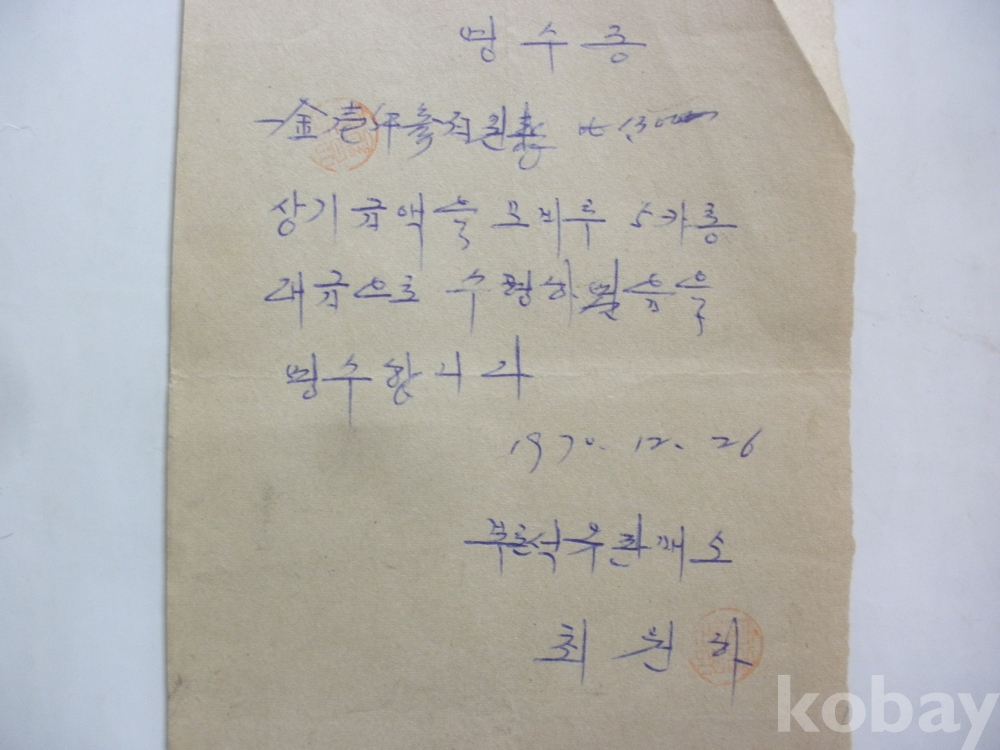 영수증
一金壱仟 원 整 ₩1,300
상기 금액을 모비루 5가롱
대금으로 수령하 을
영수함니다
1970. 12. 26
부론석유판매소
최원하
kobay